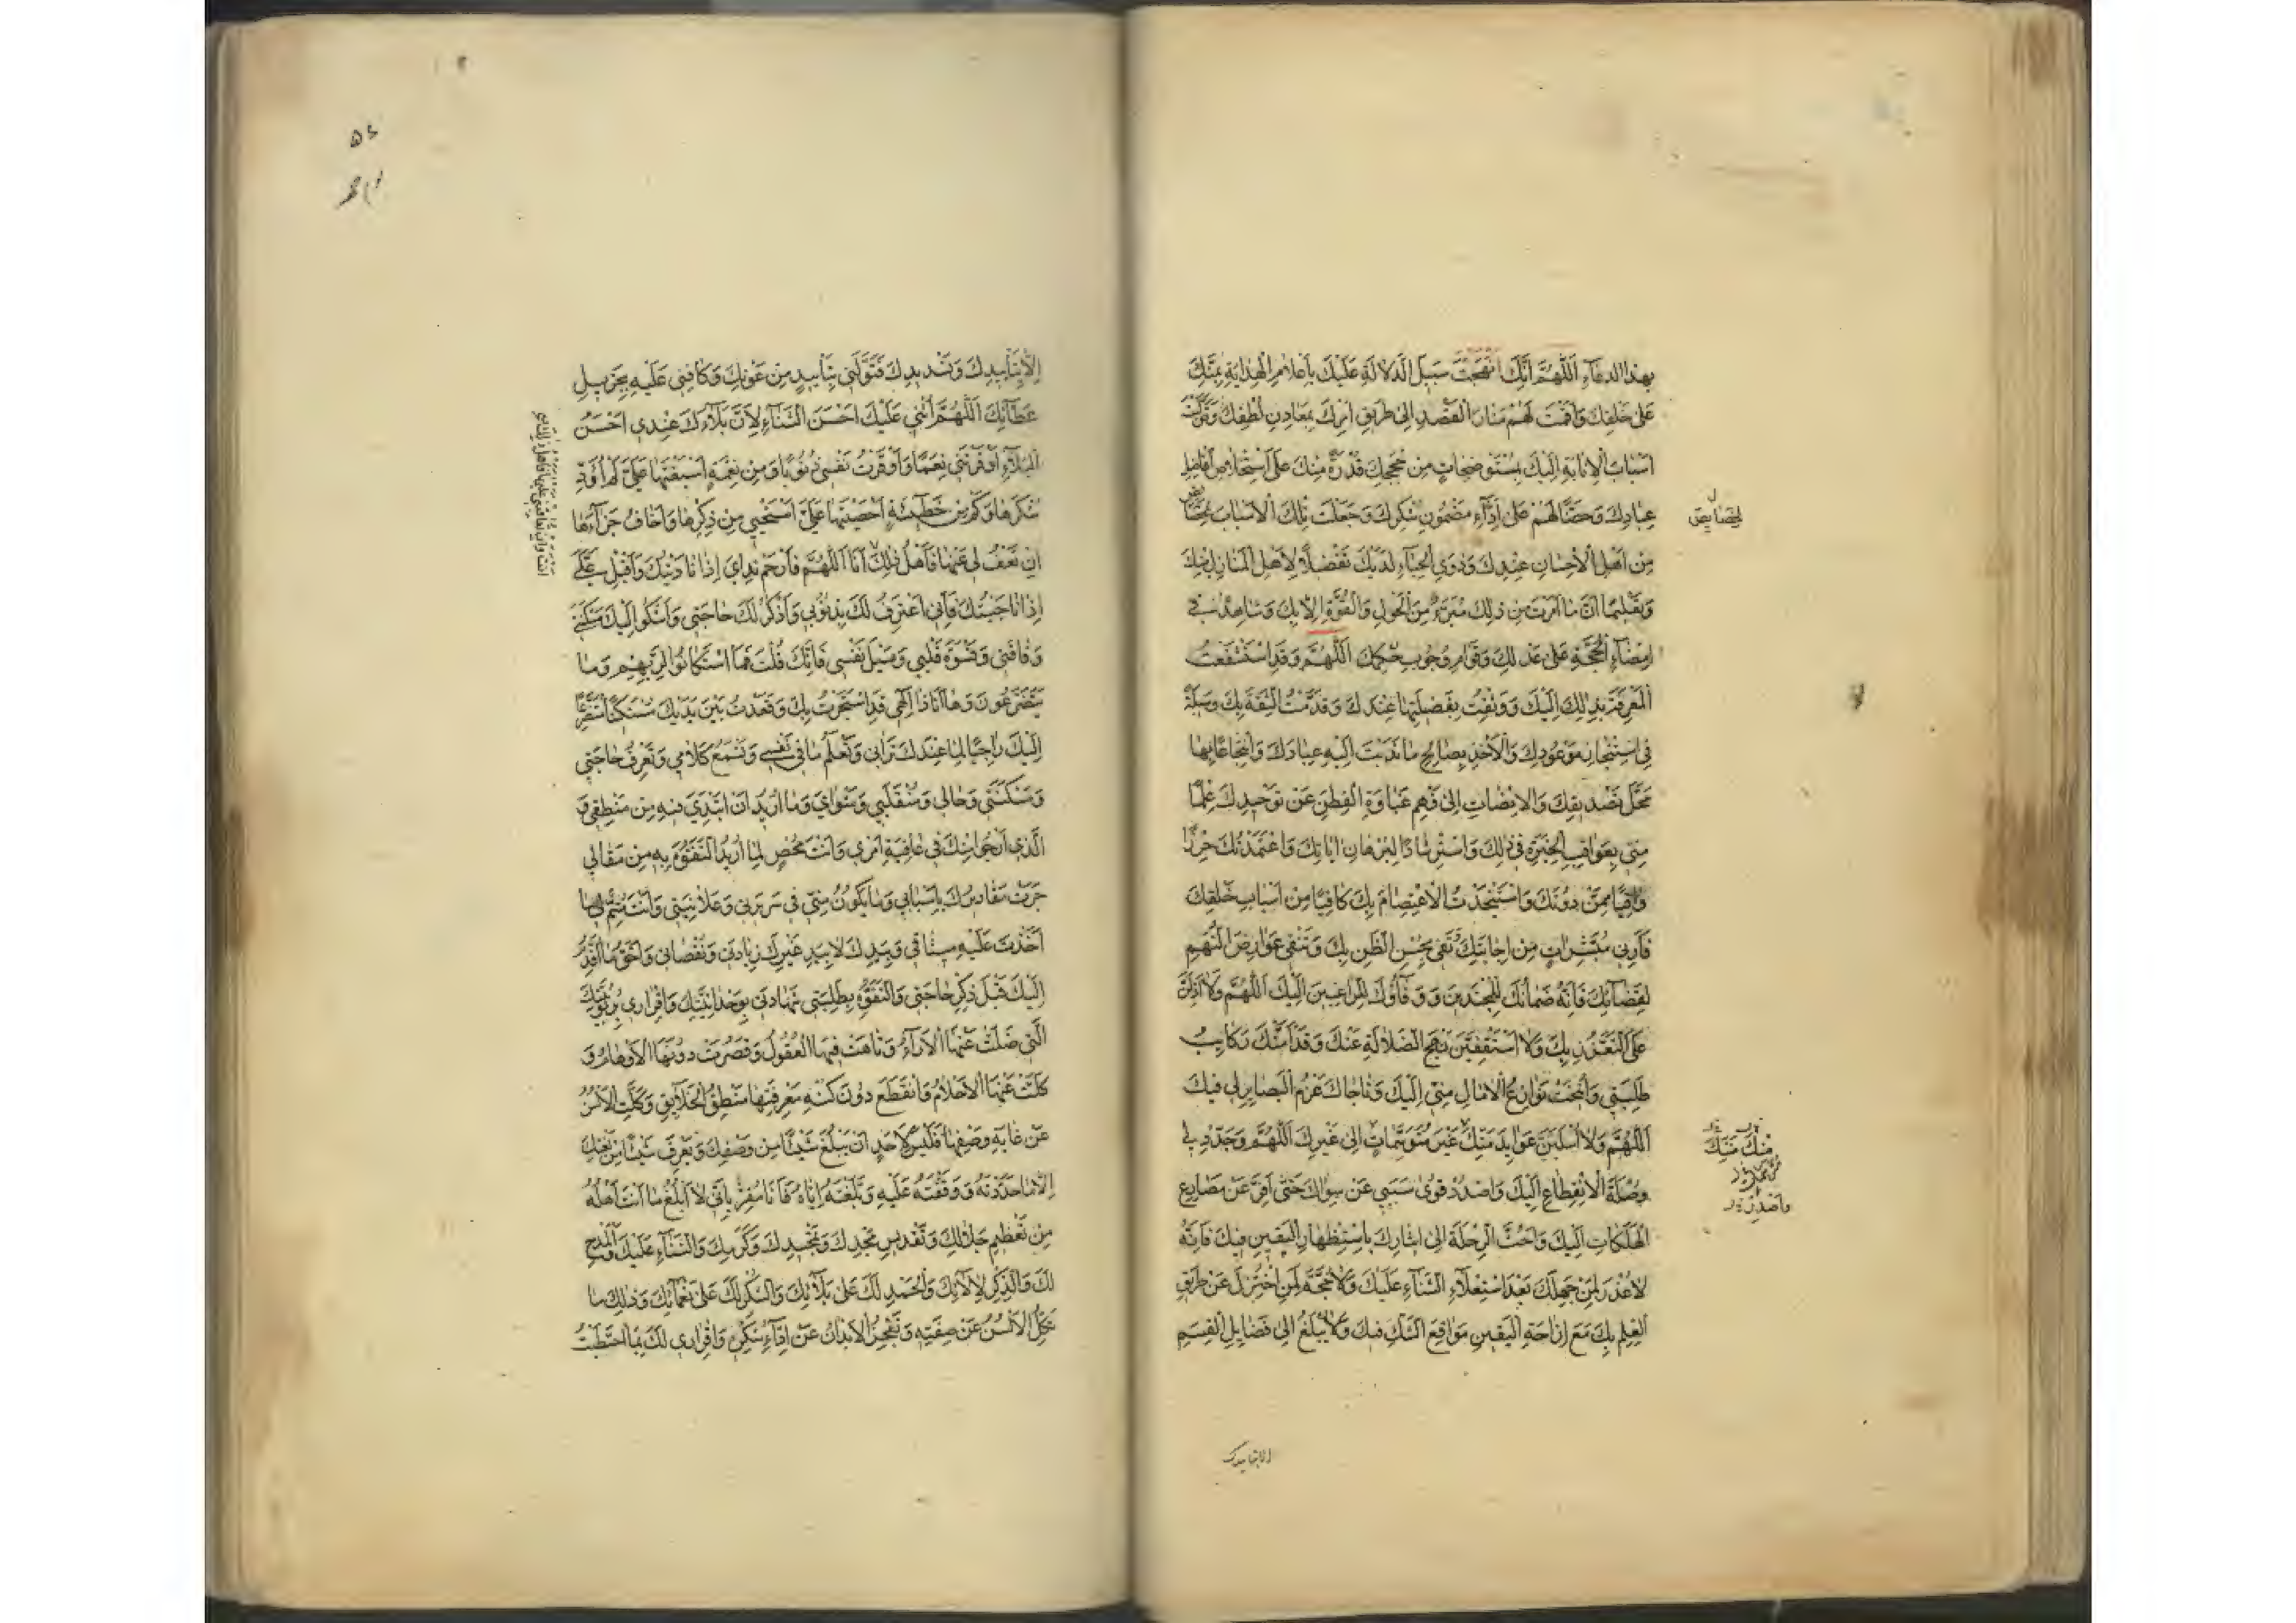 بهذا الدعاء اَللّهُمَّ اِنَّكَ اَنْهَجْتَ سَبيلَ الدَّلالَةِ عَلَيْكَ بِاَعْلامِ الْهِدايَةِ بِمَنِّكَ
عَلى خَلْقِكَ وَاَقَمْتَ لَهُمْ مَنارَ الْقَصْدِ اِلى طَريقِ اَمْرِكَ بِمَعادِنِ لُطْفِكَ وَتَوَلَّيْتَ
اَسْبابَ الْاِنابَةِ اِلَيْكَ بِمُسْتَوْضِحاتٍ مِنْ حُجَجِكَ قُدْرَةً مِنْكَ عَلَى اسْتِخْلاصِ اَفاضِلِ
عِبادِكَ وَحَضًّا لَهُمْ عَلى اَداءِ مَضْمُونِ شُكْرِكَ وَجَعَلْتَ تِلْكَ الْاَسْبابَ
لخصايص
مِنْ اَهْلِ الْاِحْسانِ عِنْدَكَ وَذَوِي الْحِباءِ لَدَيْكَ تَفْضيلًا لِاَهْلِ الْمَنازِلِ مِنْكَ
وَتَعْليمًا اَنَّ ما اَمَرْتَ مِنْ ذلِكَ مُبَرَّءٌ مِنَ الْحَوْلِ وَالْقُوَّةِ اِلّا بِكَ وَشاهِدٌ في
اِمْضاءِ الْحُجَّةِ عَلى عَدْلِكَ وَقَوامِ وُجُوبِ حُكْمِكَ اَللّهُمَّ وَقَدِ اسْتَشْفَعْتُ
الْمَعْرِفَةَ بِذلِكَ اِلَيْكَ وَوَثِقْتُ بِفَضيلَتِها عِنْدَكَ وَقَدَّمْتُ الثِّقَةَ بِكَ وَسيلَةً
فِي اسْتِنْجازِ مَوْعُودِكَ وَالْاَخْذِ بِصالِحِ ما نَدَبْتَ اِلَيْهِ عِبادَكَ وَانْتِجاعًا بِها
مَحَلَّ تَصْديقِكَ وَالْاِنْصاتِ اِلى فَهْمِ غَباوَةِ الْفِطَنِ عَنْ تَوْحيدِكَ عِلْمًا
مِنّي بِعَواقِبِ الْخِيَرَةِ في ذلِكَ وَاسْتِرْشادًا لِبُرْهانِ اياتِكَ وَاعْتَمَدْتُكَ حِرْزًا
واقِيًا مِمَّنْ دُونَكَ وَاسْتَنْجَدْتُ الْاِعْتِصامَ بِكَ كافِيًا مِنْ اَسْبابِ خَلْقِكَ
فَاَرِني مُبَشِّراتٍ مِنْ اِجابَتِكَ تَفي بِحُسْنِ الظَّنِّ بِكَ وَتَنْفي عَوارِضَ التُّهَمِ
لِقَضائِكَ فَاِنَّهُ ضَمانُكَ لِلْمُجْتَدينَ وَوَفاؤُكَ لِلرّاغِبينَ اِلَيْكَ اَللّهُمَّ وَلا اَذِلَّنَّ
عَلَى التَّعَزُّزِ بِكَ وَلا اَسْتَقْفِيَنَّ نَهْجَ الضَّلالَةِ عَنْكَ وَقَدْ اَمَّتْكَ رَكائِبُ
طَلِبَتي وَاُنيخَتْ نَوازِعُ الْامالِ مِنّي اِلَيْكَ وَناجاكَ عَزْمُ الْبَصائِرِ لي فيكَ
اَللّهُمَّ وَلا اُسْلَبَنَّ عَوائِدَ مِنَنِكَ غَيْرَ مُتَوَسِّماتٍ اِلى غَيْرِكَ اَللّهُمَّ وَجَدِّدْ لي
مِنْكَ مَنِّكَ
وُصْلَةَ الْاِنْقِطاعِ اِلَيْكَ وَاصْدُدْ قُوى سَبَبي عَنْ سِواكَ حَتّى اَفِرَّ عَنْ مَصارِعِ
الْهَلَكاتِ اِلَيْكَ وَاَحُثَّ الرِّحْلَةَ اِلى ايثارِكَ بِاسْتِظْهارِ الْيَقينِ فيكَ فَاِنَّهُ
لا عُذْرَ لِمَنْ جَهِلَكَ بَعْدَ اسْتِعْلاءِ الثَّناءِ عَلَيْكَ وَلا حُجَّةَ لِمَنِ اخْتُزِلَ عَنْ طَريقِ
الْعِلْمِ بِكَ مَعَ اِزاحَةِ الْيَقينِ مَواقِعَ الشَّكِّ فيكَ وَلا يُبْلَغُ اِلى فَضايِلِ الْقِسَمِ
الا بتاييدك
۵٤
اِلّا بِتَأْييدِكَ وَتَسْديدِكَ فَتَوَلَّني بِتَأْييدٍ مِنْ عَوْنِكَ وَكافِني عَلَيْهِ بِجَزيلِ
عَطائِكَ اَللّهُمَّ اُثْني عَلَيْكَ اَحْسَنَ الثَّناءِ لِاَنَّ بَلاءَكَ عِنْدي اَحْسَنُ
الْبَلاءِ اَوْقَرْتَني نِعَمًا وَاَوْقَرْتُ نَفْسي ذُنُوبًا وَمِنْ نِعْمَةٍ اَسْبَغْتَها عَلَيَّ لَمْ اُؤَدِّ
شُكْرَها وَكَمْ مِنْ خَطيئَةٍ اَحْصَيْتَها عَلَيَّ اَسْتَحْيي مِنْ ذِكْرِها وَاَخافُ جَزاءَها
اِنْ تَعْفُ لي عَنْها فَاَهْلُ ذلِكَ اَنَا اَللّهُمَّ فَارْحَمْ نِدائي اِذا نادَيْتُكَ وَاَقْبِلْ عَلَيَّ
اِذا ناجَيْتُكَ فَاِنّي اَعْتَرِفُ لَكَ بِذُنُوبي وَاَذْكُرُ لَكَ حاجَتي وَاَشْكُو اِلَيْكَ مَسْكَنَتي
وَفاقَتي وَقَسْوَةَ قَلْبي وَمَيْلَ نَفْسي فَاِنَّكَ قُلْتَ فَمَا اسْتَكانُوا لِرَبِّهِمْ وَما
يَتَضَرَّعُونَ وَها اَنَا ذا اِلهي قَدِ اسْتَجَرْتُ بِكَ وَقَعَدْتُ بَيْنَ يَدَيْكَ مُسْتَكينًا مُتَضَرِّعًا
اِلَيْكَ راجِيًا لِما عِنْدَكَ تَراني وَتَعْلَمُ ما في نَفْسي وَتَسْمَعُ كَلامي وَتَعْرِفُ حاجَتي
وَمَسْكَنَتي وَحالي وَمُنْقَلَبي وَمَثْوايَ وَما اُريدُ اَنْ اَبْتَدِئَ فيهِ مِنْ مَنْطِقي وَ
الَّذي اَرْجُو مِنْكَ في عاقِبَةِ اَمْري وَاَنْتَ مُحْصٍ لِما اُريدُ التَّفَوُّهَ بِهِ مِنْ مَقالي
جَرَتْ مَقاديرُكَ بِاَسْبابي وَما يَكُونُ مِنّي في سَريرَتي وَعَلانِيَتي وَاَنْتَ مُتِمٌّ لي ما
اَخَذْتَ عَلَيْهِ ميثاقي وَبِيَدِكَ لا بِيَدِ غَيْرِكَ زِيادَتي وَنُقْصاني وَاَحَقُّ ما اُقَدِّمُ
اِلَيْكَ قَبْلَ ذِكْرِ حاجَتي وَالتَّفَوُّهِ بِطَلِبَتي شَهادَتي بِوَحْدانِيَّتِكَ وَاِقْراري بِرُبُوبِيَّتِكَ
الَّتي ضَلَّتْ عَنْهَا الْاراءُ وَتاهَتْ فيهَا الْعُقُولُ وَقَصُرَتْ دُونَهَا الْاَوْهامُ وَ
كَلَّتْ عَنْهَا الْاَحْلامُ وَانْقَطَعَ دُونَ كُنْهِ مَعْرِفَتِها مَنْطِقُ الْخَلائِقِ وَكَلَّتِ الْاَلْسُنُ
عَنْ غايَةِ وَصْفِها فَلَيْسَ لِاَحَدٍ اَنْ يَبْلُغَ شَيْئًا مِنْ وَصْفِكَ وَيَعْرِفَ شَيْئًا مِنْ نَعْتِكَ
اِلّا ما حَدَّدْتَهُ وَوَقَّفْتَهُ عَلَيْهِ وَبَلَّغْتَهُ اِيّاهُ فَاَنَا مُقِرٌّ بِاَنّي لا اَبْلُغُ ما اَنْتَ اَهْلُهُ
مِنْ تَعْظيمِ جَلالِكَ وَتَقْديسِ مَجْدِكَ وَتَمْجيدِكَ وَكَرَمِكَ وَالثَّناءِ عَلَيْكَ وَالْمَدْحِ
لَكَ وَالذِّكْرِ لِالائِكَ وَالْحَمْدِ لَكَ عَلى بَلائِكَ وَالشُّكْرِ لَكَ عَلى نَعْمائِكَ وَذلِكَ ما
تَكِلُّ الْاَلْسُنُ عَنْ صِفَتِهِ وَتَعْجِزُ الْاَبْدانُ عَنْ اَداءِ شُكْرِهِ وَاِقْراري لَكَ بِمَا احْتَطَبْتُ